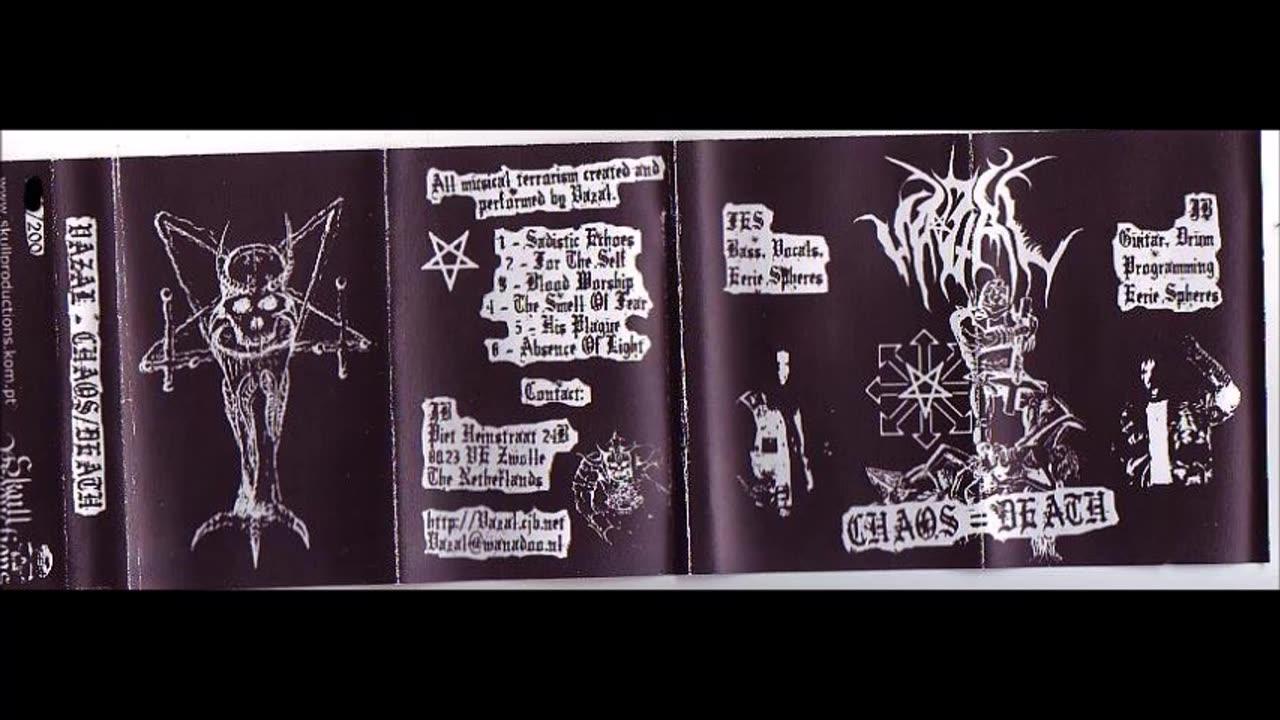 /200
www.skullproductions.kom.pt
Skull
VAZAL - CHAOS/DEATH
All musical terrorism created and
performed by Vazal.
1 - Sadistic Echoes
2 - For The Self
3 - Blood Worship
4 - The Smell Of Fear
5 - His Plaque
6 - Absence Of Light
Contact:
JB
Piet Heinstraat 24B
8023 VE Zwolle
The Netherlands
http://Vazal.cjb.net
Vazal@wanadoo.nl
JES
Bass, Vocals,
Eerie Spheres
VAZAL
JB
Guitar, Drum
Programming
Eerie Spheres
CHAOS = DEATH